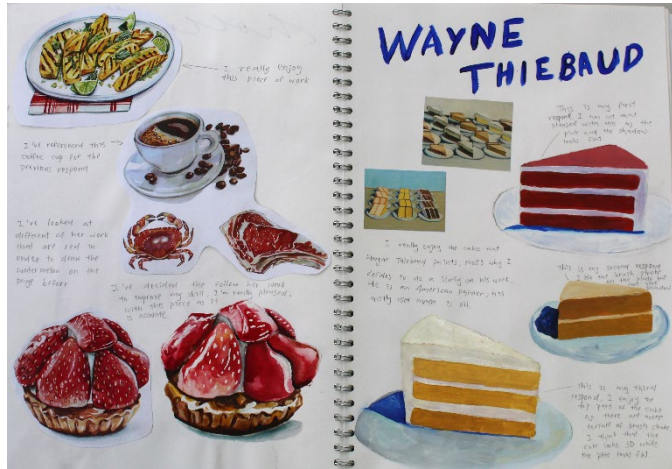 I really enjoy
this piece of work
I've referenced this
coffee cup for the
previous respond
I've looked at
different of her work
that are red in
order to draw the
on the
page before
I've decided the follow her work
to improve my skill, I'm really pleased
with this piece as it
is accurate.
WAYNE
THIEBAUD
This is my first
respond, I am not most
pleased with this as the
plate and the shadow
looks flat
I really enjoy the cakes that
Wayne Thiebaud paints, that's why I
decided to do a study on his work.
He is an American painter, he's
mostly used medium is oil.
This is my second respond
I like the brush stroke
on the plate
This is my third
respond, I enjoy
the cake
as there are more
texture of brush stroke.
I think that the
cake looks 3D while
the plate looks flat.